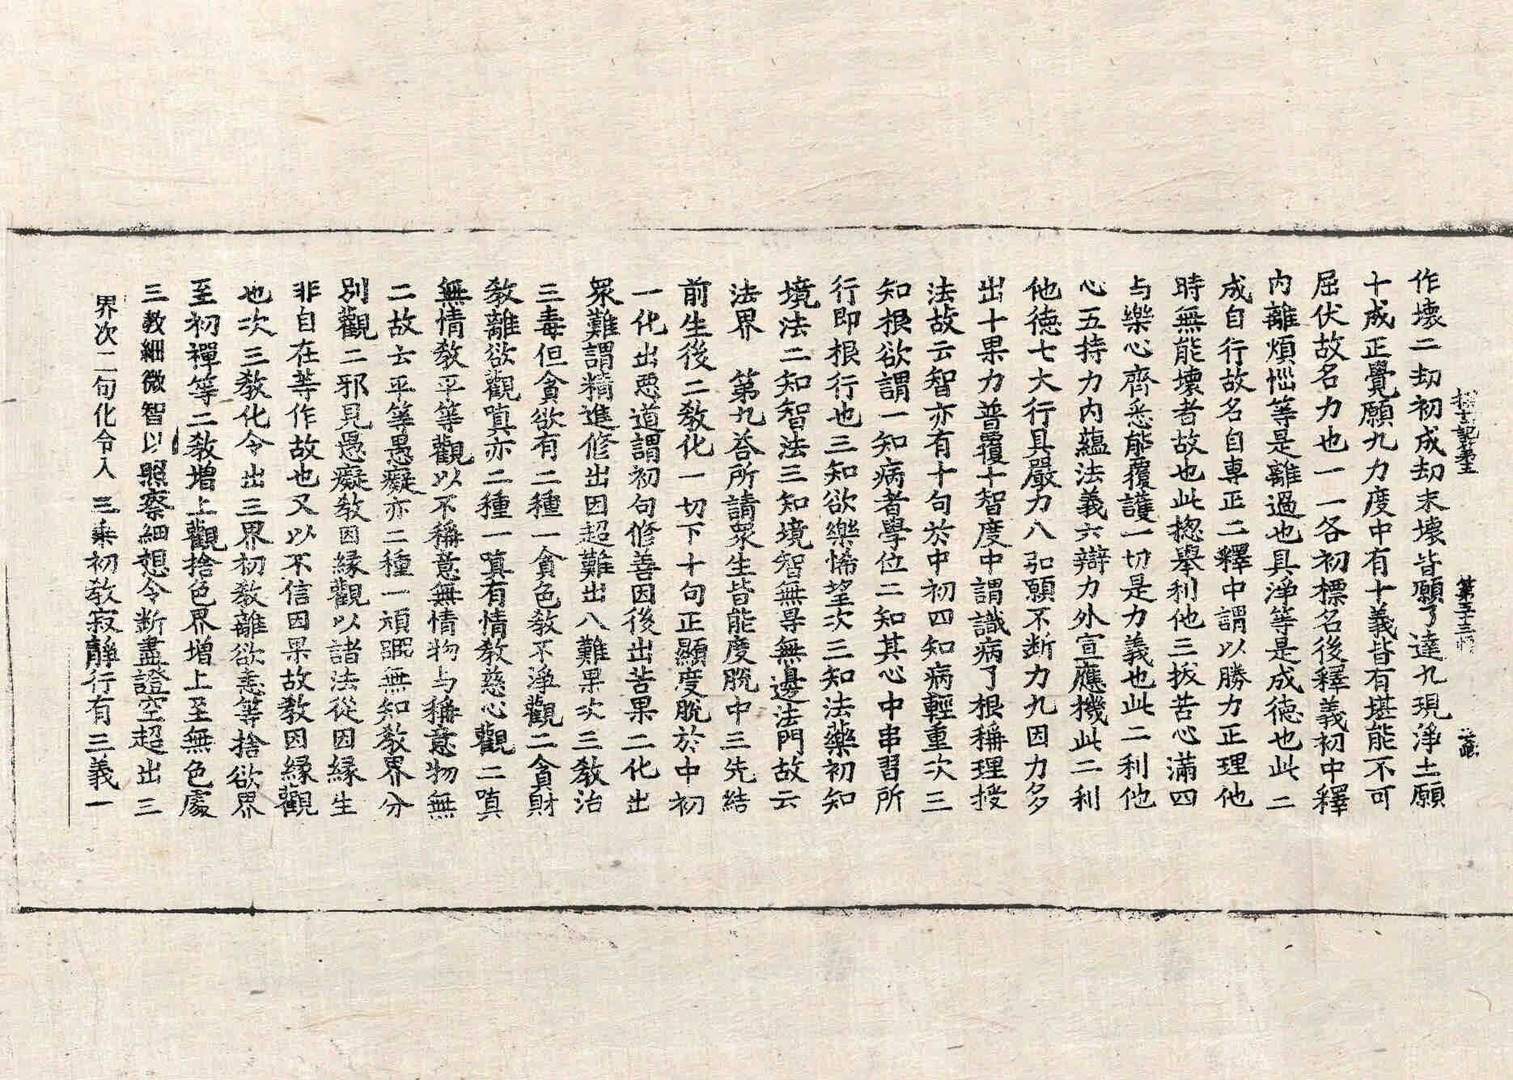 探玄記㐧五 第五十三 張 㳒
作壞二劫初成劫末壞皆願了達九現淨土願
十成正覺願九力度中有十義皆有堪能不可
屈伏故名力也一一各初標名後釋義初中釋
內離煩惱等是離過也具淨等是成德也此二
成自行故名自專正二釋中謂以勝力正理他
時無能壞者故也此揔舉利他三拔苦心滿四
与樂心齊悉能覆護一切是力義也此二利他
心五持力內蘊法義六辯力外宣應機此二利
他德七大行具嚴力八弘願不斷力九因力多
出十果力普覆十智度中謂識病了根稱理授
法故云智亦有十句於中初四知病輕重次三
知根欲謂一知病者學位二知其心中串習所
行即根行也三知欲樂悕望次三知法藥初知
境法二知智法三知境智無㝵無邊法門故云
法界　第九荅所請眾生皆能度脫中三先結
前生後二教化一切下十句正顯度脫於中初
一化出惡道謂初句修善因後出苦果二化出
眾難謂精進修出因超難出八難果次三教治
三毒但貪欲有二種一貪色教不淨觀二貪財
教離欲觀嗔亦二種一嗔有情教慈心觀二嗔
無情教平等觀以不稱意無情物与稱意物無
二故云平等愚癡亦二種一頑𭿇無知教界分
別觀二邪見愚癡教因緣觀以諸法從因緣生
非自在等作故也又以不信因果故教因緣觀
也次三教化令出三界初教離欲恚等捨欲界
至初禪等二教增上觀捨色界增上至無色處
三教細微智以照察細想令斷盡證空超出三
界次二句化令入三乘初教寂靜行有三義一